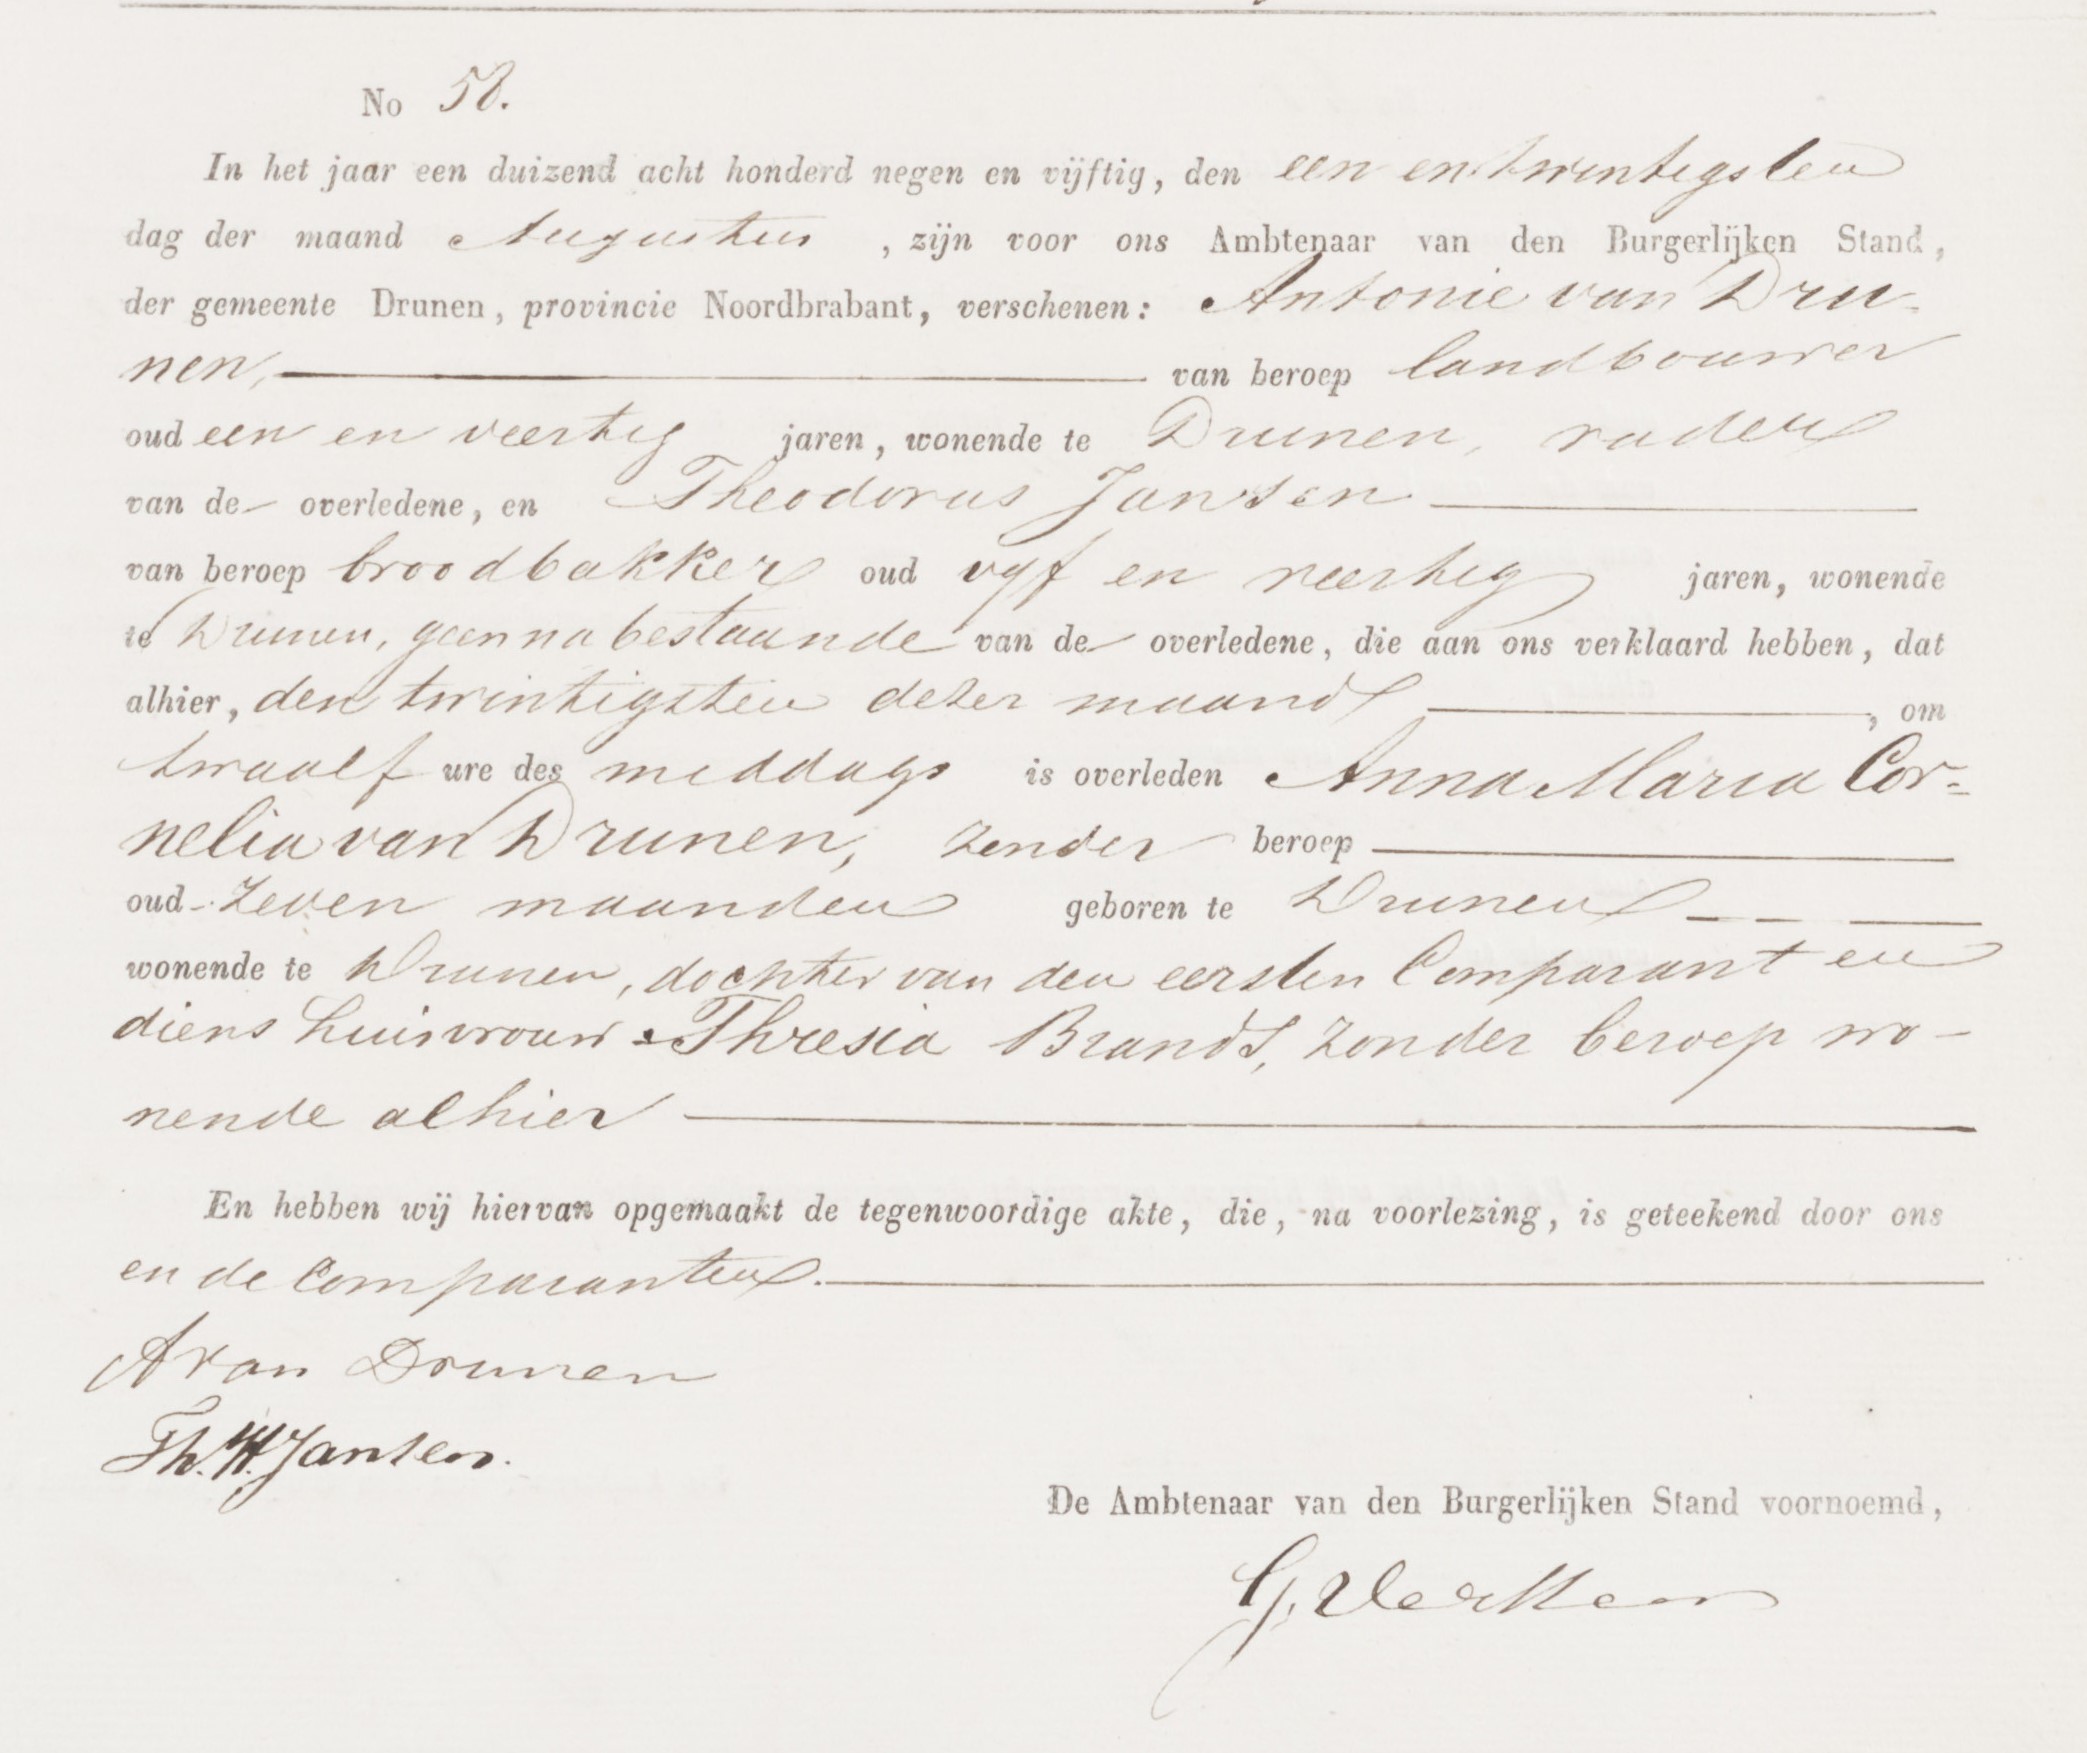 No 58.
In het jaar een duizend acht honderd negen en vijftig, den een en twintigsten
dag der maand Augustus , zijn voor ons Ambtenaar van den Burgerlijken Stand,
der gemeente Drunen, provincie Noordbrabant, verschenen: Antonie van Dru-
nen, van beroep landbouwer
oud een en veertig jaren, wonende te Drunen, vader
van de overledene, en Theodorus Jansen
van beroep broodbakker oud vyf en veertig jaren, wonende
te Drunen, geen nabestaande van de overledene, die aan ons verklaard hebben, dat
alhier, den twintigsten dezer maand , om
twaalf ure des middags is overleden Anna Maria Cor=
nelia van Drunen, zonder beroep
oud zeven maanden geboren te Drunen
wonende te Drunen, dochter van den eersten Comparant en
diens huisvrouw Thresia Brands, zonder beroep wo-
nende alhier
En hebben wij hiervan opgemaakt de tegenwoordige akte, die, na voorlezing, is geteekend door ons
en de Comparanten.
A van Drunen
Th. W. Jansen.
De Ambtenaar van den Burgerlijken Stand voornoemd,
G.